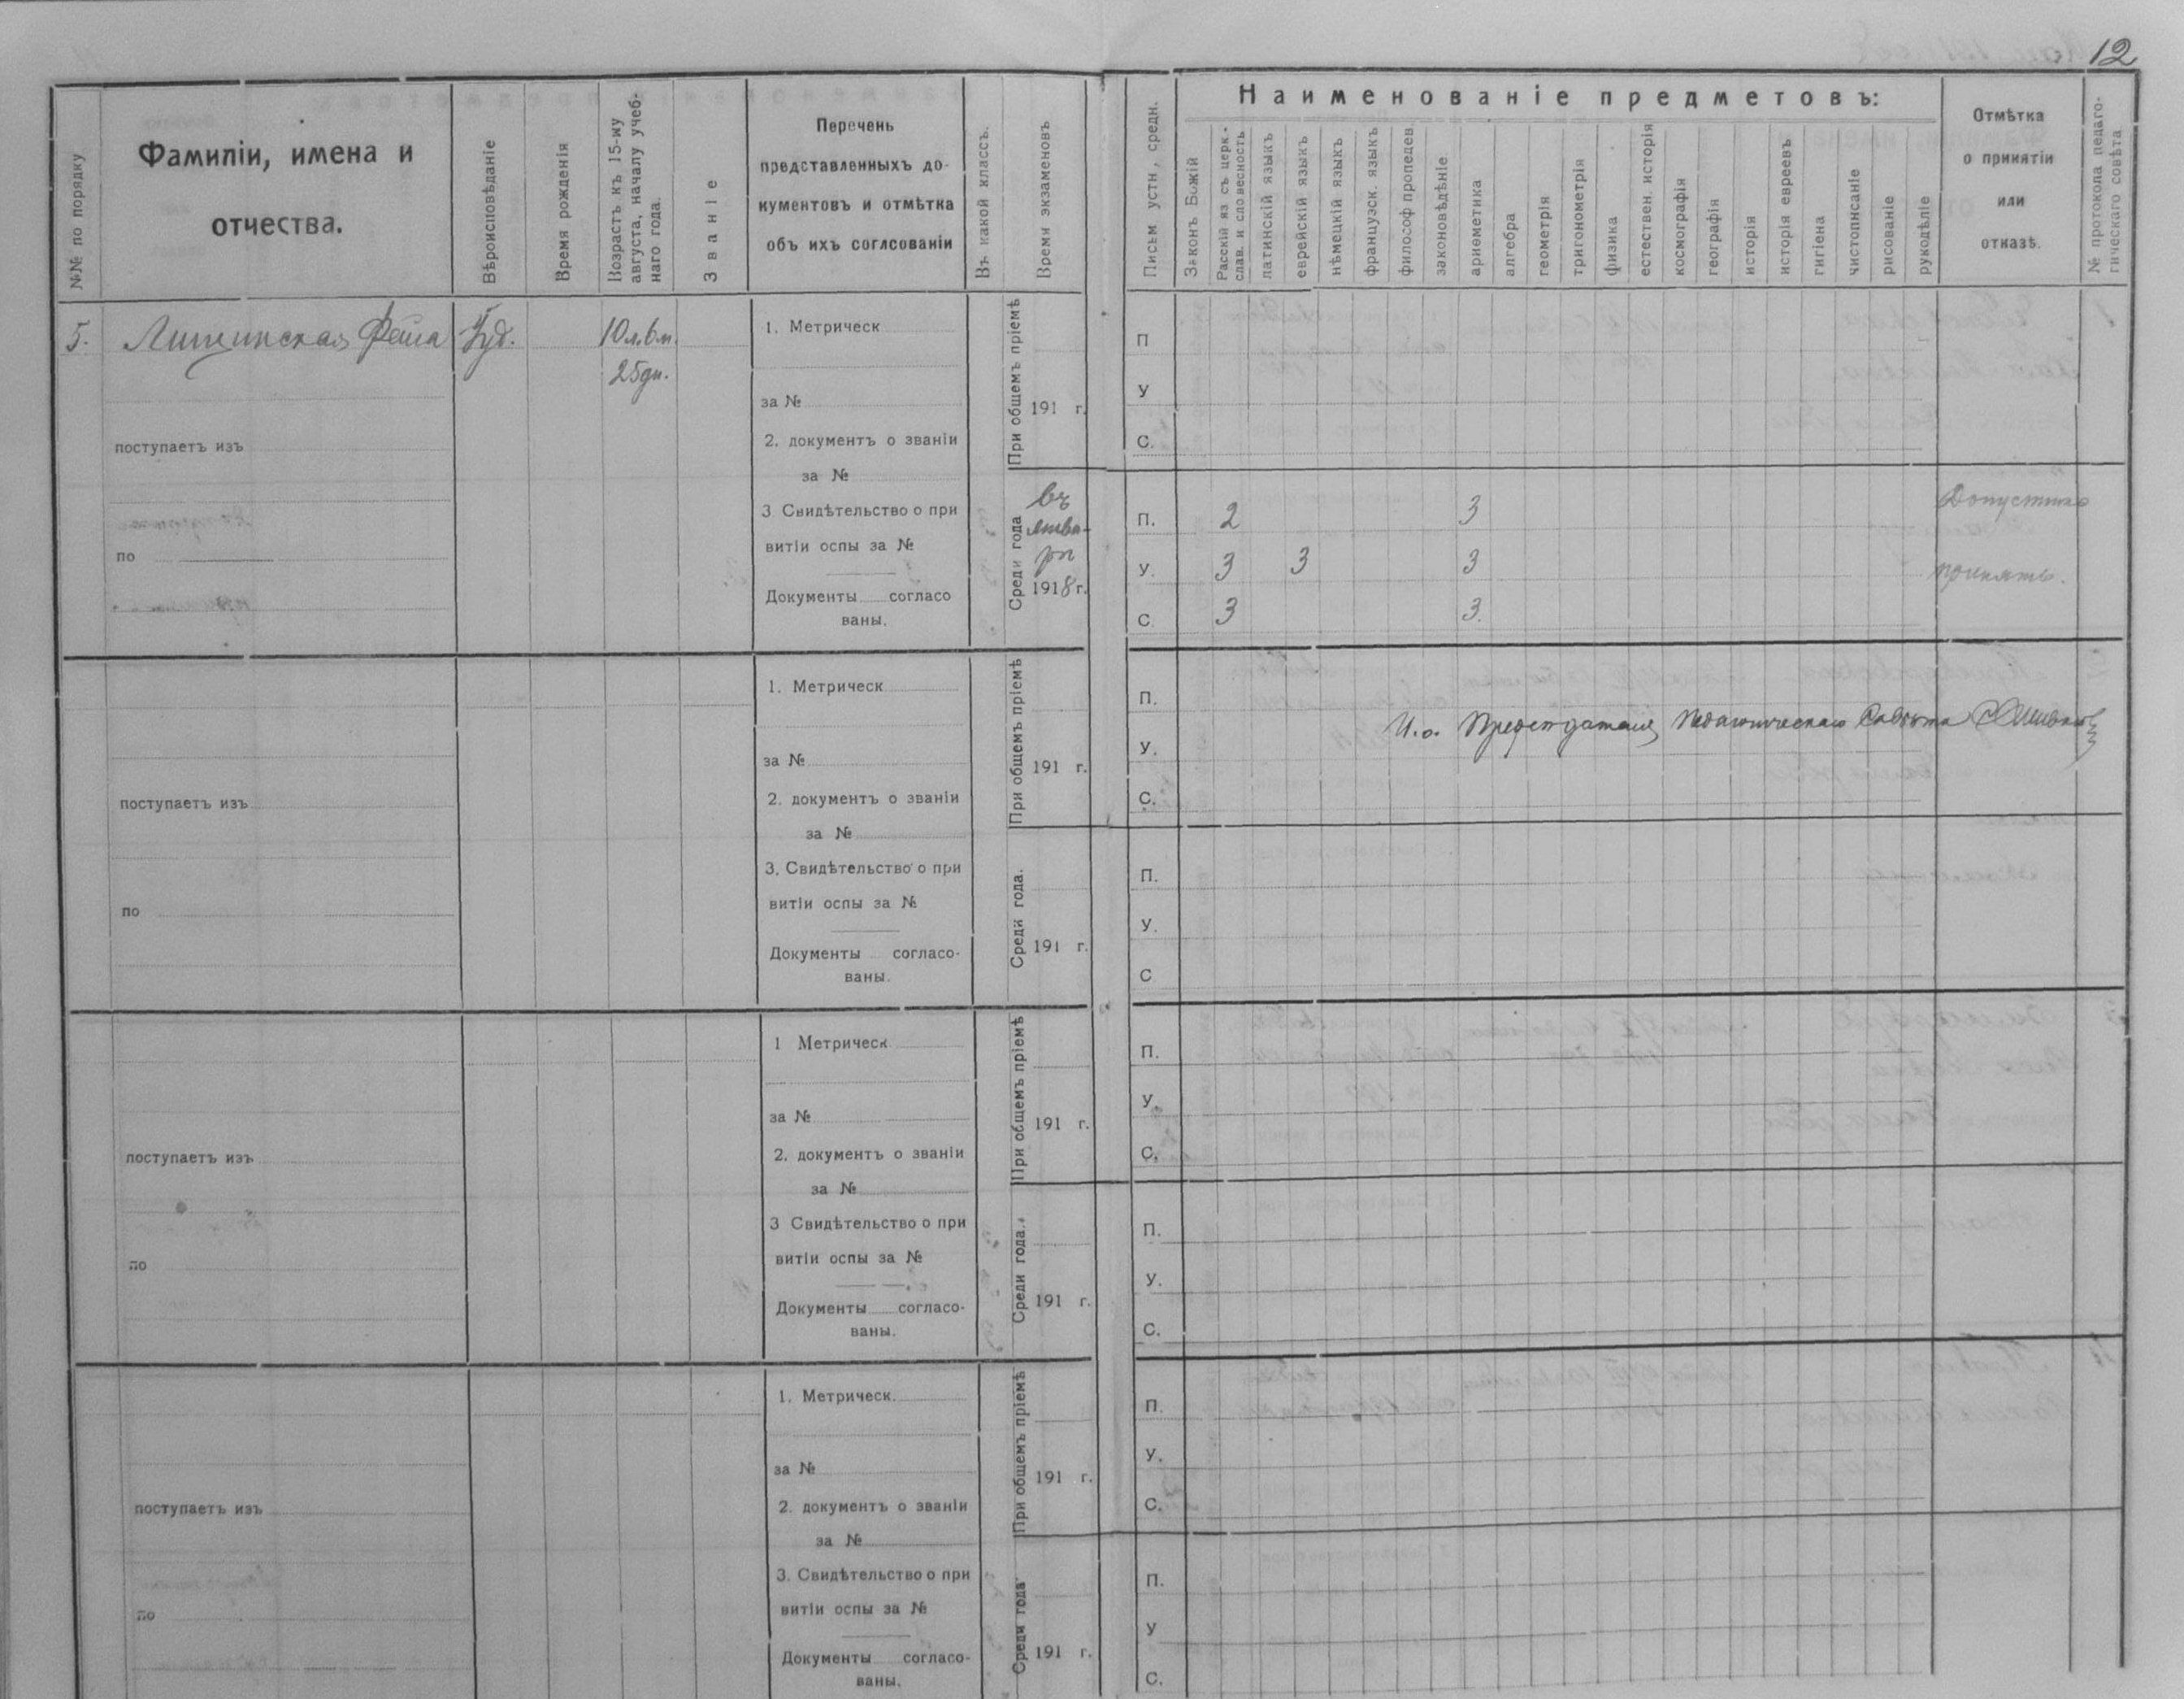 12
№№ по порядку
Фамиліи, имена и
отчества.
Вѣроисповѣданіе
Время рожденія
Возрастъ къ 15-му
августа, началу учеб-
наго года.
Званіе
Перечень
представленныхъ до-
кументовъ и отмѣтка
объ ихъ соглсованіи
Въ какой классъ.
Время экзаменовъ
Письм устн, средн.
Наименованіе предметовъ:
Законъ Божій
Расскій яз съ церк.-
слав. и словесность
латинскій языкъ
еврейскій языкъ
нѣмецкій языкъ
французск. языкъ
философ пропедев
законовѣдѣніе
ариѳметика
алгебра
геометрія
тригонометрія
физика
естествен. исторія
космографія
географія
исторія
исторія евреевъ
гигіена
чистописаніе
рисованіе
рукодѣліе
Отмѣтка
о принятіи
или
отказѣ.
№ протокола педаго-
гическаго совѣта
5.
Фейга
Іуд.
10 л. 6 м.
25 дн.
поступаетъ изъ
по
1. Метрическ
за №
2. документъ о званіи
за №
3 Свидѣтельство о при
витіи оспы за №
Документы согласо
ваны.
При общемъ пріемѣ
191 г.
Среди года
въ
янва-
рѣ
1918 г.
П
У
С.
П. 2 3
У. 3 3 3
С 3 3.
Допустить
принять.
поступаетъ изъ
по
1. Метрическ
за №
2. документъ о званіи
за №
3. Свидѣтельство о при
витіи оспы за №
Документы согласо-
ваны.
При общемъ пріемѣ
191 г.
Среди года.
191 г.
П.
И.о. Предсѣдателя Педагогическаго Совѣта
У.
С.
П.
У.
С
поступаетъ изъ
по
1 Метрическ
за №
2. документъ о званіи
за №
3 Свидѣтельство о при
витіи оспы за №
Документы согласо-
ваны.
При общемъ пріемѣ
191 г.
Среди года.
191 г.
П.
У.
С.
П.
У.
С.
поступаетъ изъ
по
1. Метрическ.
за №
2. документъ о званіи
за №
3. Свидѣтельство о при
витіи оспы за №
Документы согласо-
ваны.
При общемъ пріемѣ
191 г.
Среди года
191 г.
П.
У.
С.
П.
У
С.